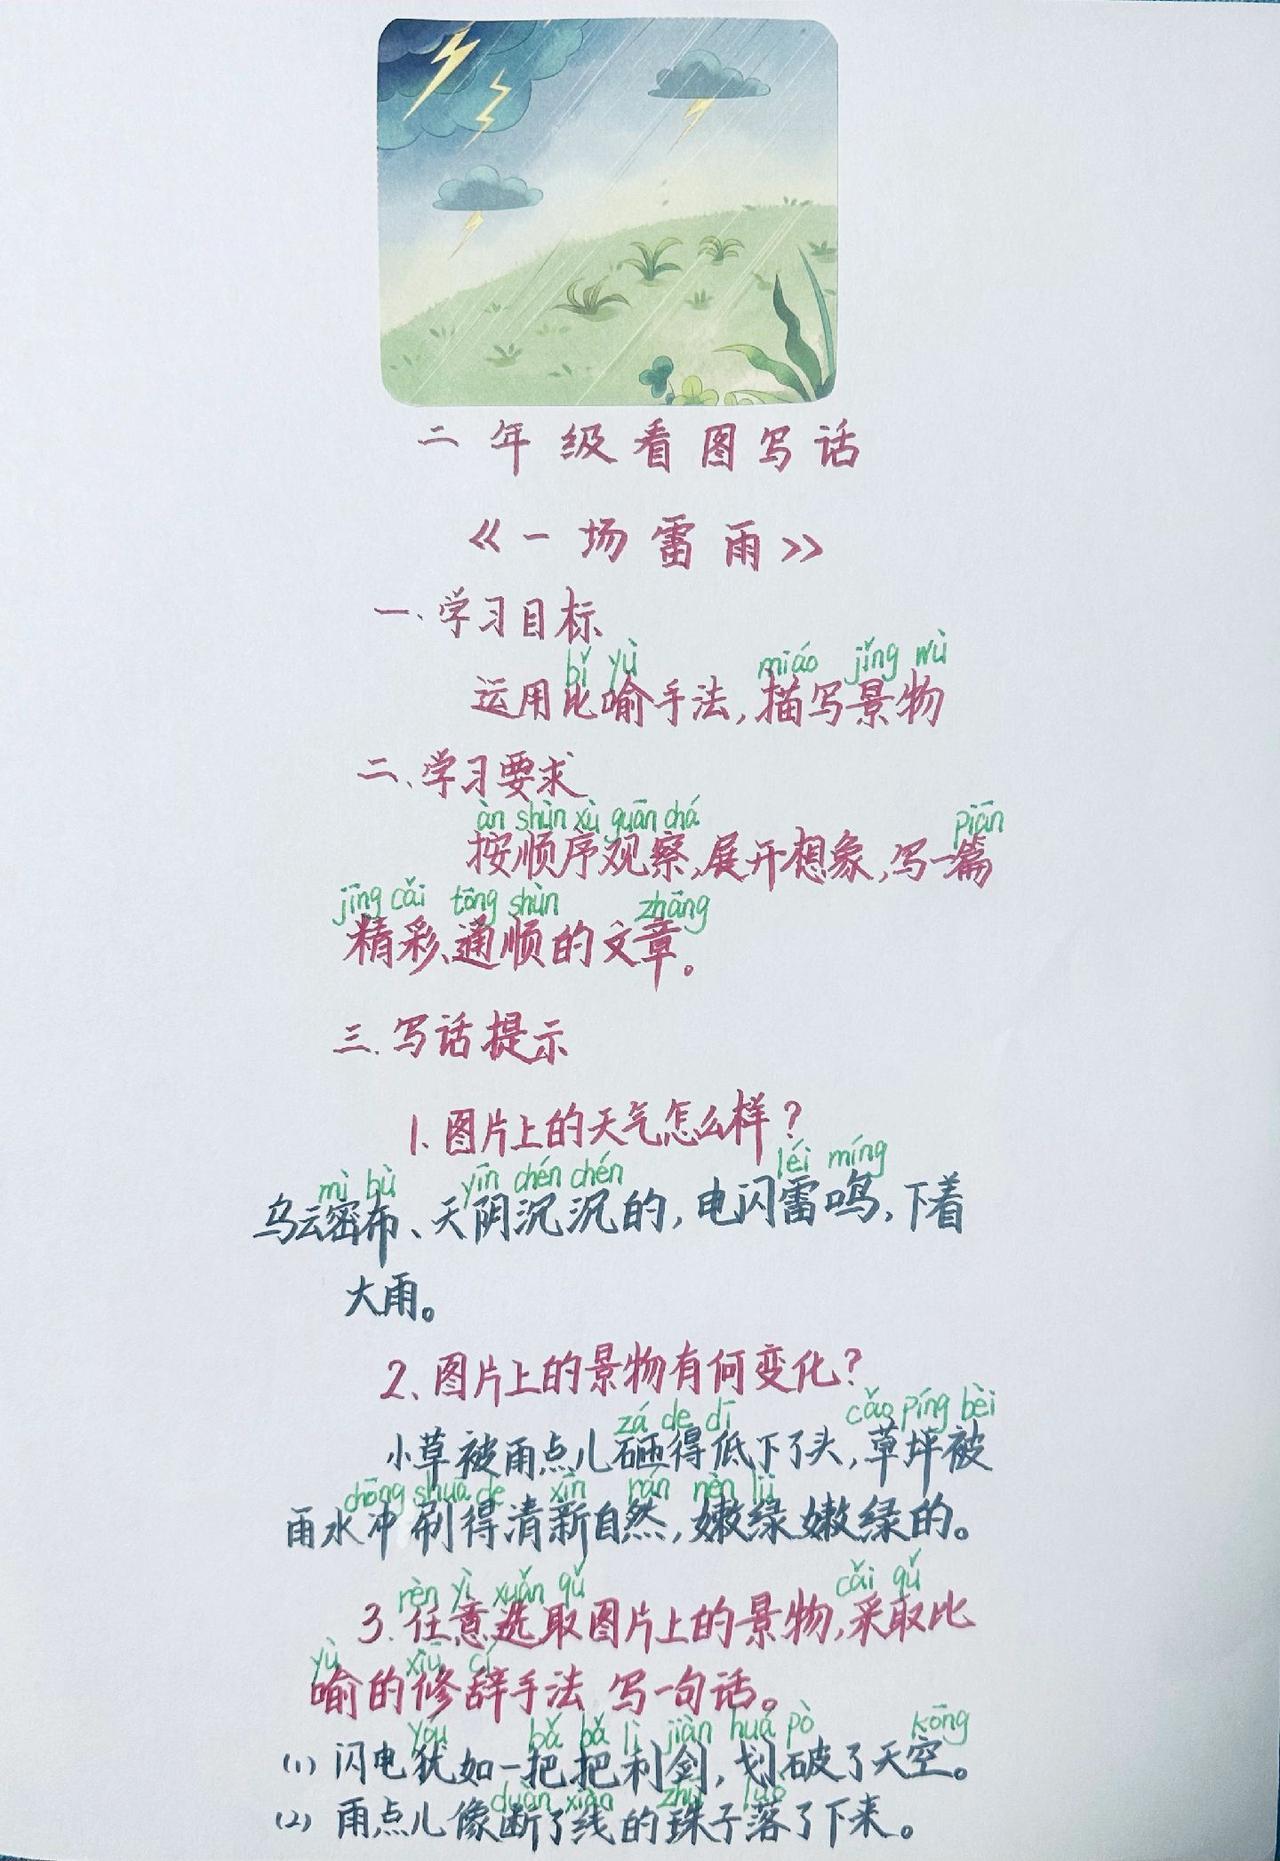 二年级看图写话
《一场雷雨》
一.学习目标
bǐ yù miáo jǐng wù
运用比喻手法,描写景物
二、学习要求
àn shùn xù guān chá piān
按顺序观察,展开想象,写一篇
jīng cǎi tōng shùn zhāng
精彩、通顺的文章。
三.写话提示
1.图片上的天气怎么样?
mì bù yīn chén chén léi míng
乌云密布、天阴沉沉的,电闪雷鸣,下着
大雨。
2、图片上的景物有何变化?
zá de dī cǎo píng bèi
小草被雨点儿砸得低下了头,草坪被
chōng shuā de xīn rán nèn lǜ
雨水冲刷得清新自然,嫩绿嫩绿的。
rèn yì xuǎn qǔ cǎi qǔ
3.任意选取图片上的景物,采取比
yù xiū cí
喻的修辞手法 写一句话。
yóu bǎ bǎ lì jiàn huá pò kōng
(1) 闪电犹如一把把利剑,划破了天空。
duàn xiàn zhū luò
(2) 雨点儿像断了线的珠子落了下来。